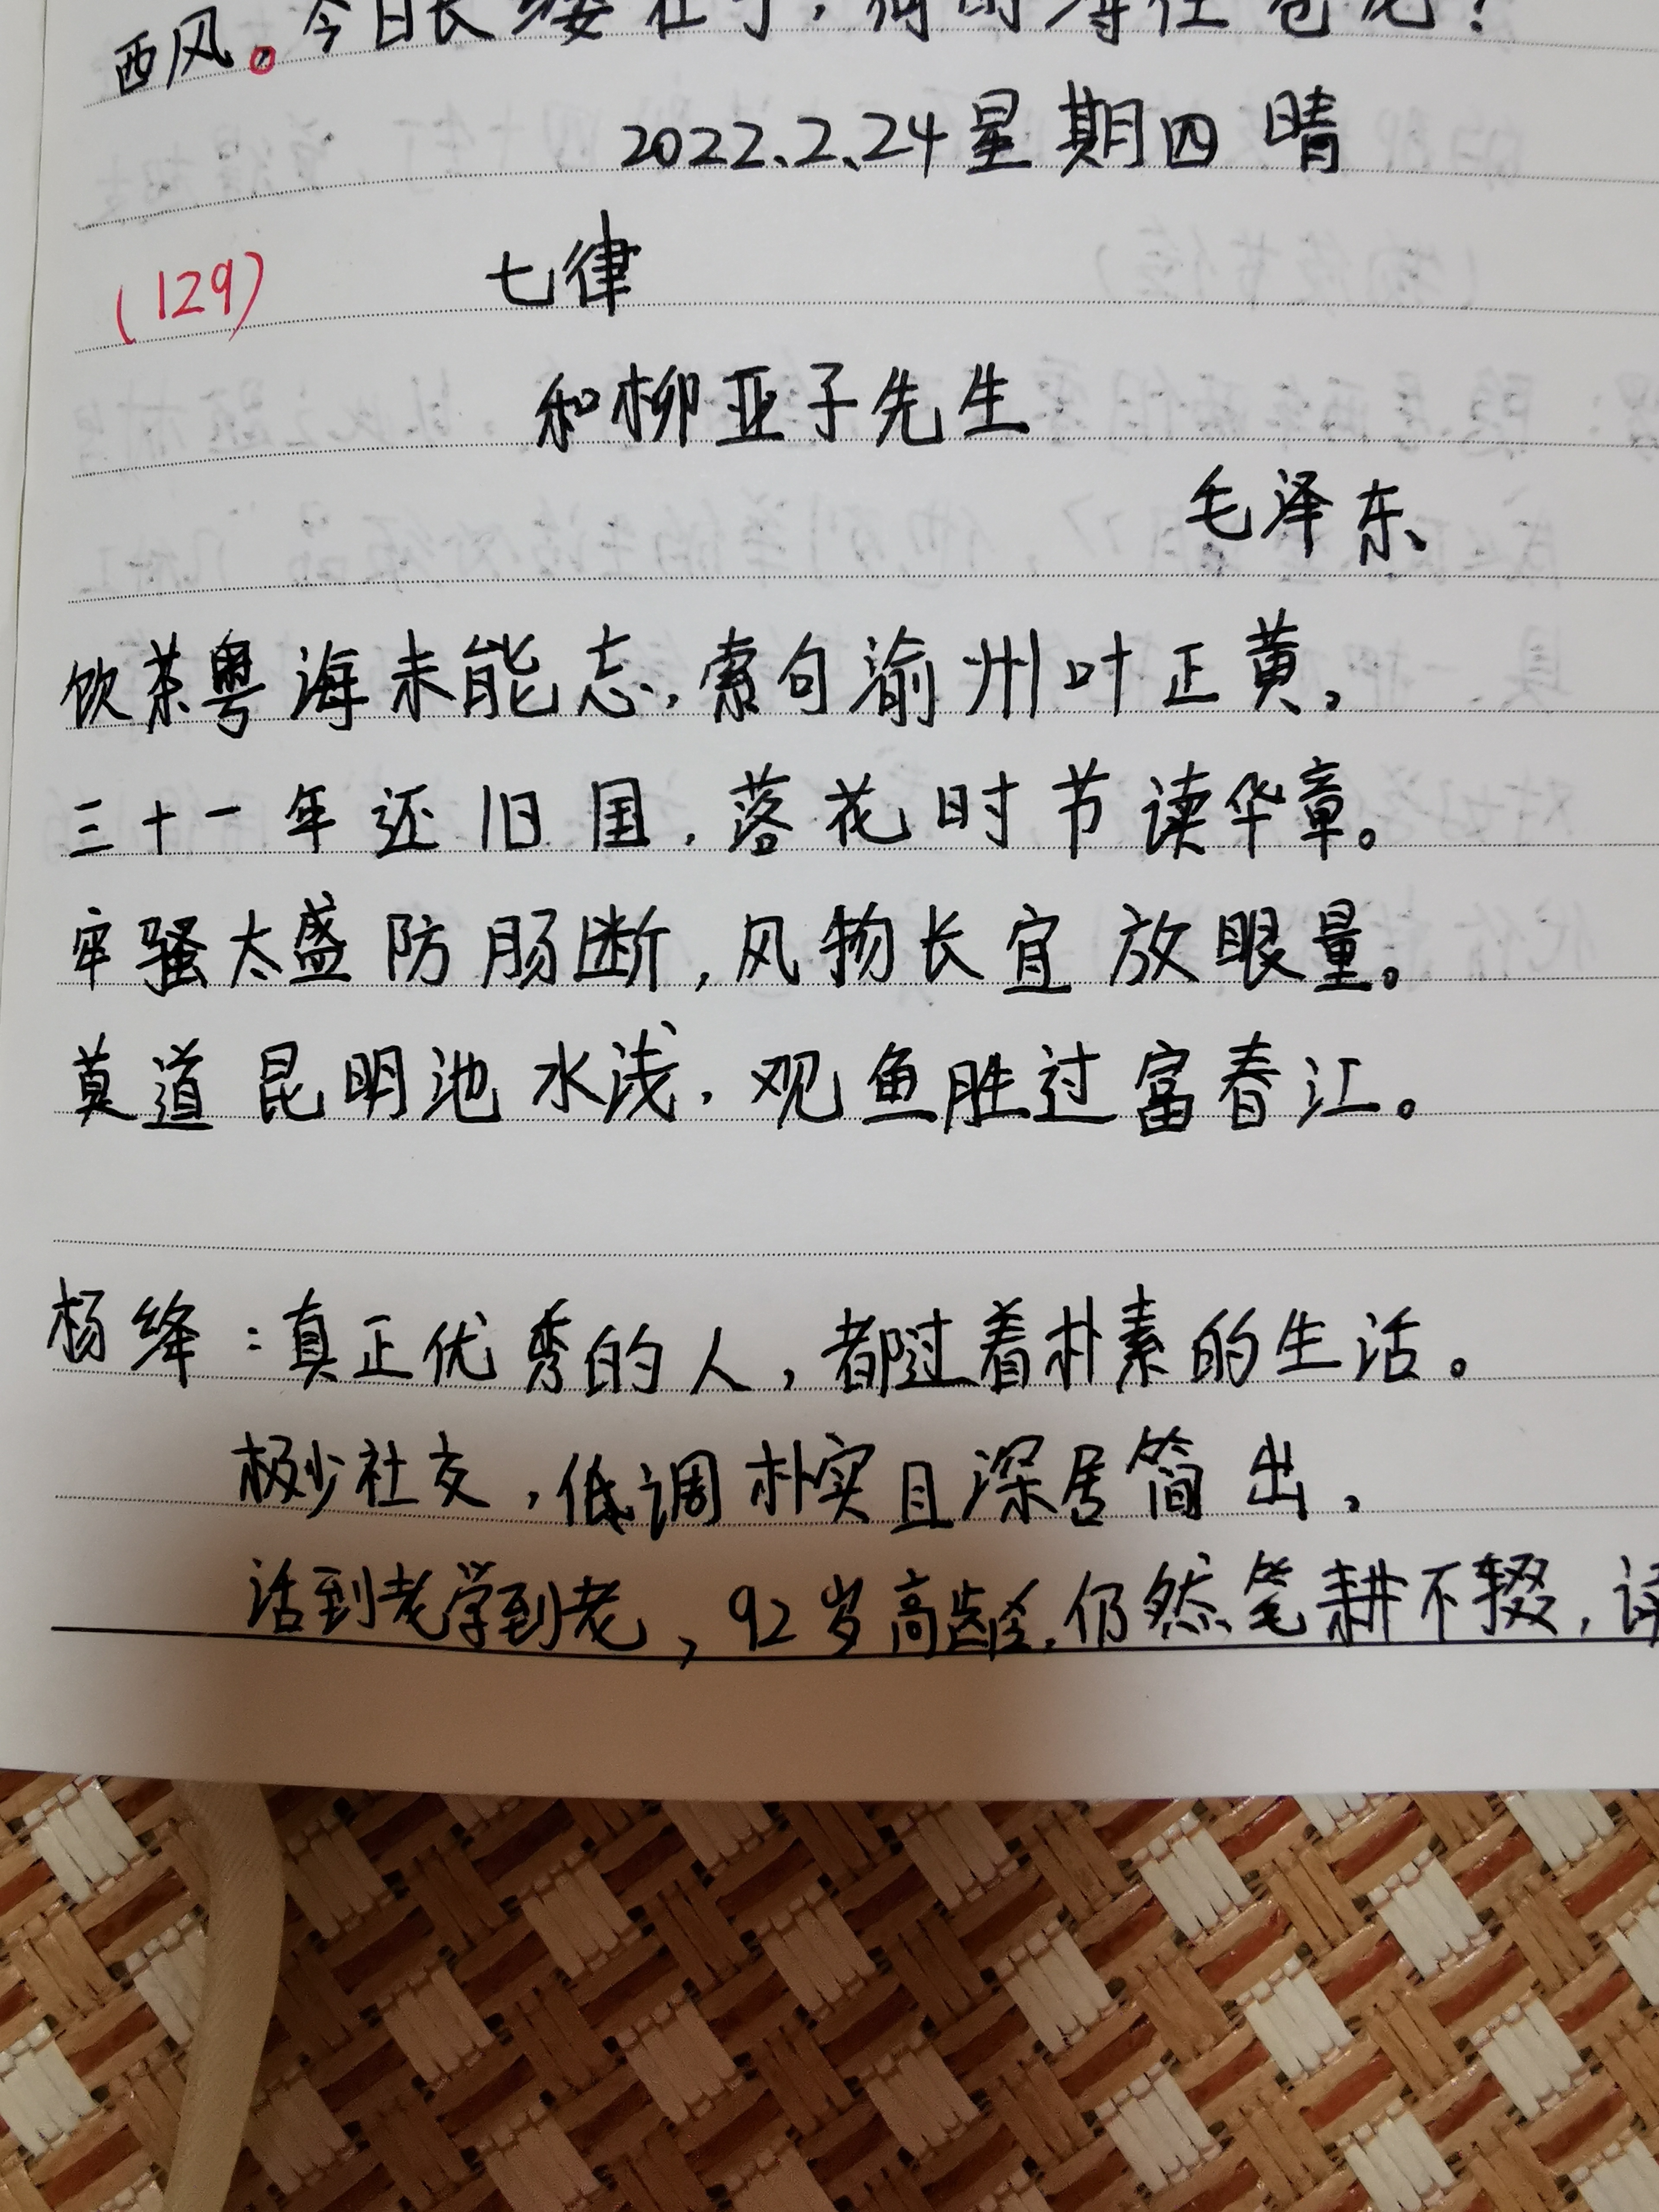 西风。今日长缨在手,何时缚住苍龙?
2022、2、24星期四 晴
(129) 七律
和柳亚子先生
毛泽东
饮茶粤海未能忘,索句渝州叶正黄,
三十一年还旧国,落花时节读华章。
牢骚太盛防肠断,风物长宜放眼量。
莫道昆明池水浅,观鱼胜过富春江。
杨绛:真正优秀的人,都过着朴素的生活。
极少社交,低调朴实且深居简出,
活到老学到老,92岁高龄,仍然笔耕不辍,